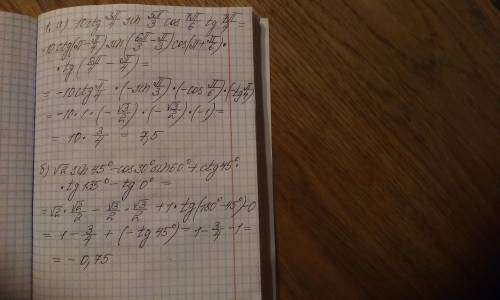 1. а) 10ctg 3π/4 sin 5π/3 cos 7π/6 tg 7π/4 =
sin(6π/3 - π/3) cos(π + π/6) ·
=
= -10ctg π/4 · (-sin π/3) · (-cos π/6) · (-tg π/4)
= -10 · 1 · (-√3/2) · (-√3/2) · (-1) =
= 10 · 3/4 = 7,5
б) √2 sin 45° - cos 30° sin 60° + ctg 45° ·
· tg 135° - tg 0° =
= √2 · √2/2 - √3/2 · √3/2 + 1 · tg(180° - 45°) - 0
= 1 - 3/4 + (-tg 45°) = 1 - 3/4 - 1 =
= -0,75